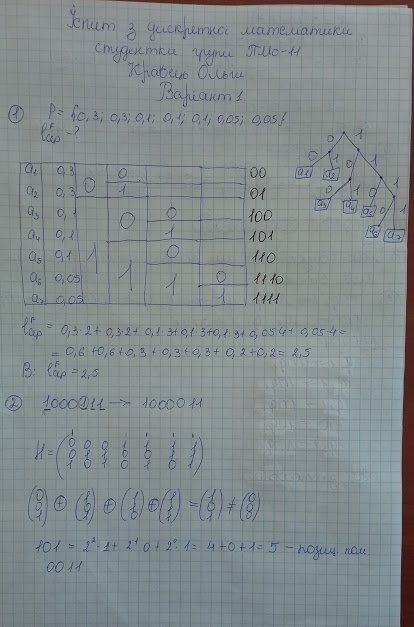 Іспит з дискретної математики
студентка групи ПМО-11
Кравець Ольги
Варіант 1
① P = {0,3; 0,3; 0,1; 0,1; 0,1; 0,05; 0,05}
ℓ^F сер - ?
a₁ 0,3 0 0 00
a₂ 0,3 1 01
a₃ 0,1 1 0 0 100
a₄ 0,1 1 101
a₅ 0,1 1 0 110
a₆ 0,05 1 0 1110
a₇ 0,05 1 1111
0 1
0 1 0 1
a₁ a₂ 0 1 0 1
a₃ a₄ a₅ 0 1
a₆ a₇
ℓ^F сер = 0,3·2 + 0,3·2 + 0,1·3 + 0,1·3 + 0,1·3 + 0,05·4 + 0,05·4 =
= 0,6 + 0,6 + 0,3 + 0,3 + 0,3 + 0,2 + 0,2 = 2,5
В: ℓ^F сер = 2,5
② 1000111 → 1000011
H = (0 0 0 1 1 1 1
0 1 1 0 0 1 1
1 0 1 0 1 0 1)
(0 0 1) ⊕ (1 0 1) ⊕ (1 1 0) ⊕ (1 1 1) = (1 0 1) ≠ (0 0 0)
101 = 2²·1 + 2¹·0 + 2⁰·1 = 4 + 0 + 1 = 5 – позиц. пом
0011